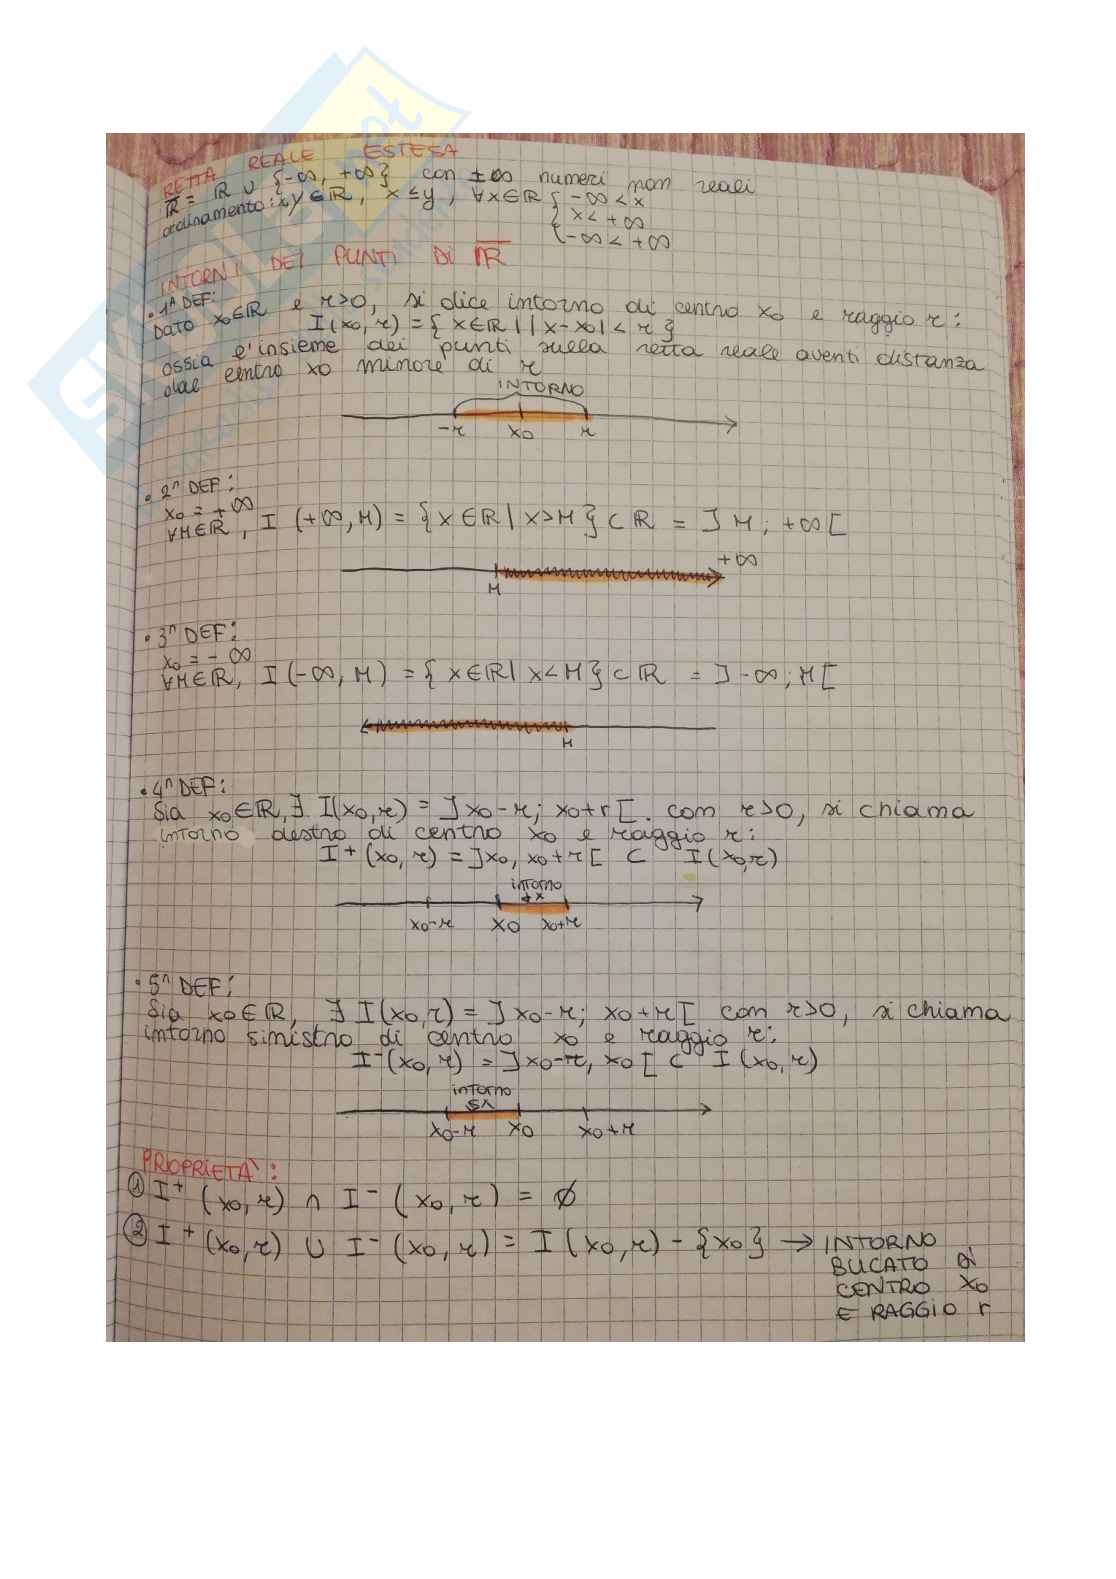 RETTA REALE ESTESA
R̅ = ℝ ∪ {-∞, +∞} con ±∞ numeri non reali
ordinamento: x,y ∈ ℝ, x ≤ y, ∀x∈ℝ { -∞ < x
x < +∞
-∞ < +∞
INTORNI DEI PUNTI DI R̅
• 1ᴬ DEF:
DATO x₀∈ℝ e r>0, si dice intorno di centro x₀ e raggio r:
I(x₀, r) = { x∈ℝ | |x-x₀| < r }
ossia l'insieme dei punti sulla retta reale aventi distanza
dal centro x₀ minore di r
INTORNO
-r x₀ r
• 2ᴬ DEF:
x₀ = +∞
∀M∈ℝ, I (+∞, M) = { x∈ℝ | x>M } ⊂ ℝ = ]M; +∞[
+∞
M
• 3ᴬ DEF:
x₀ = -∞
∀M∈ℝ, I (-∞, M) = { x∈ℝ | x<M } ⊂ ℝ = ]-∞; M[
M
• 4ᴬ DEF:
Sia x₀∈ℝ, ∃ I(x₀,r) = ]x₀-r; x₀+r[. con r>0, si chiama
intorno destro di centro x₀ e raggio r:
I⁺(x₀, r) = ]x₀, x₀+r[ ⊂ I(x₀,r)
intorno
dx
x₀-r x₀ x₀+r
• 5ᴬ DEF:
Sia x₀∈ℝ, ∃ I(x₀,r) = ]x₀-r; x₀+r[ con r>0, si chiama
intorno sinistro di centro x₀ e raggio r:
I⁻(x₀, r) = ]x₀-r, x₀[ ⊂ I(x₀, r)
intorno
sx
x₀-r x₀ x₀+r
PROPRIETA':
① I⁺ (x₀, r) ∩ I⁻ (x₀, r) = ∅
② I⁺ (x₀, r) ∪ I⁻ (x₀, r) = I (x₀, r) - {x₀} → INTORNO
BUCATO di
CENTRO x₀
E RAGGIO r